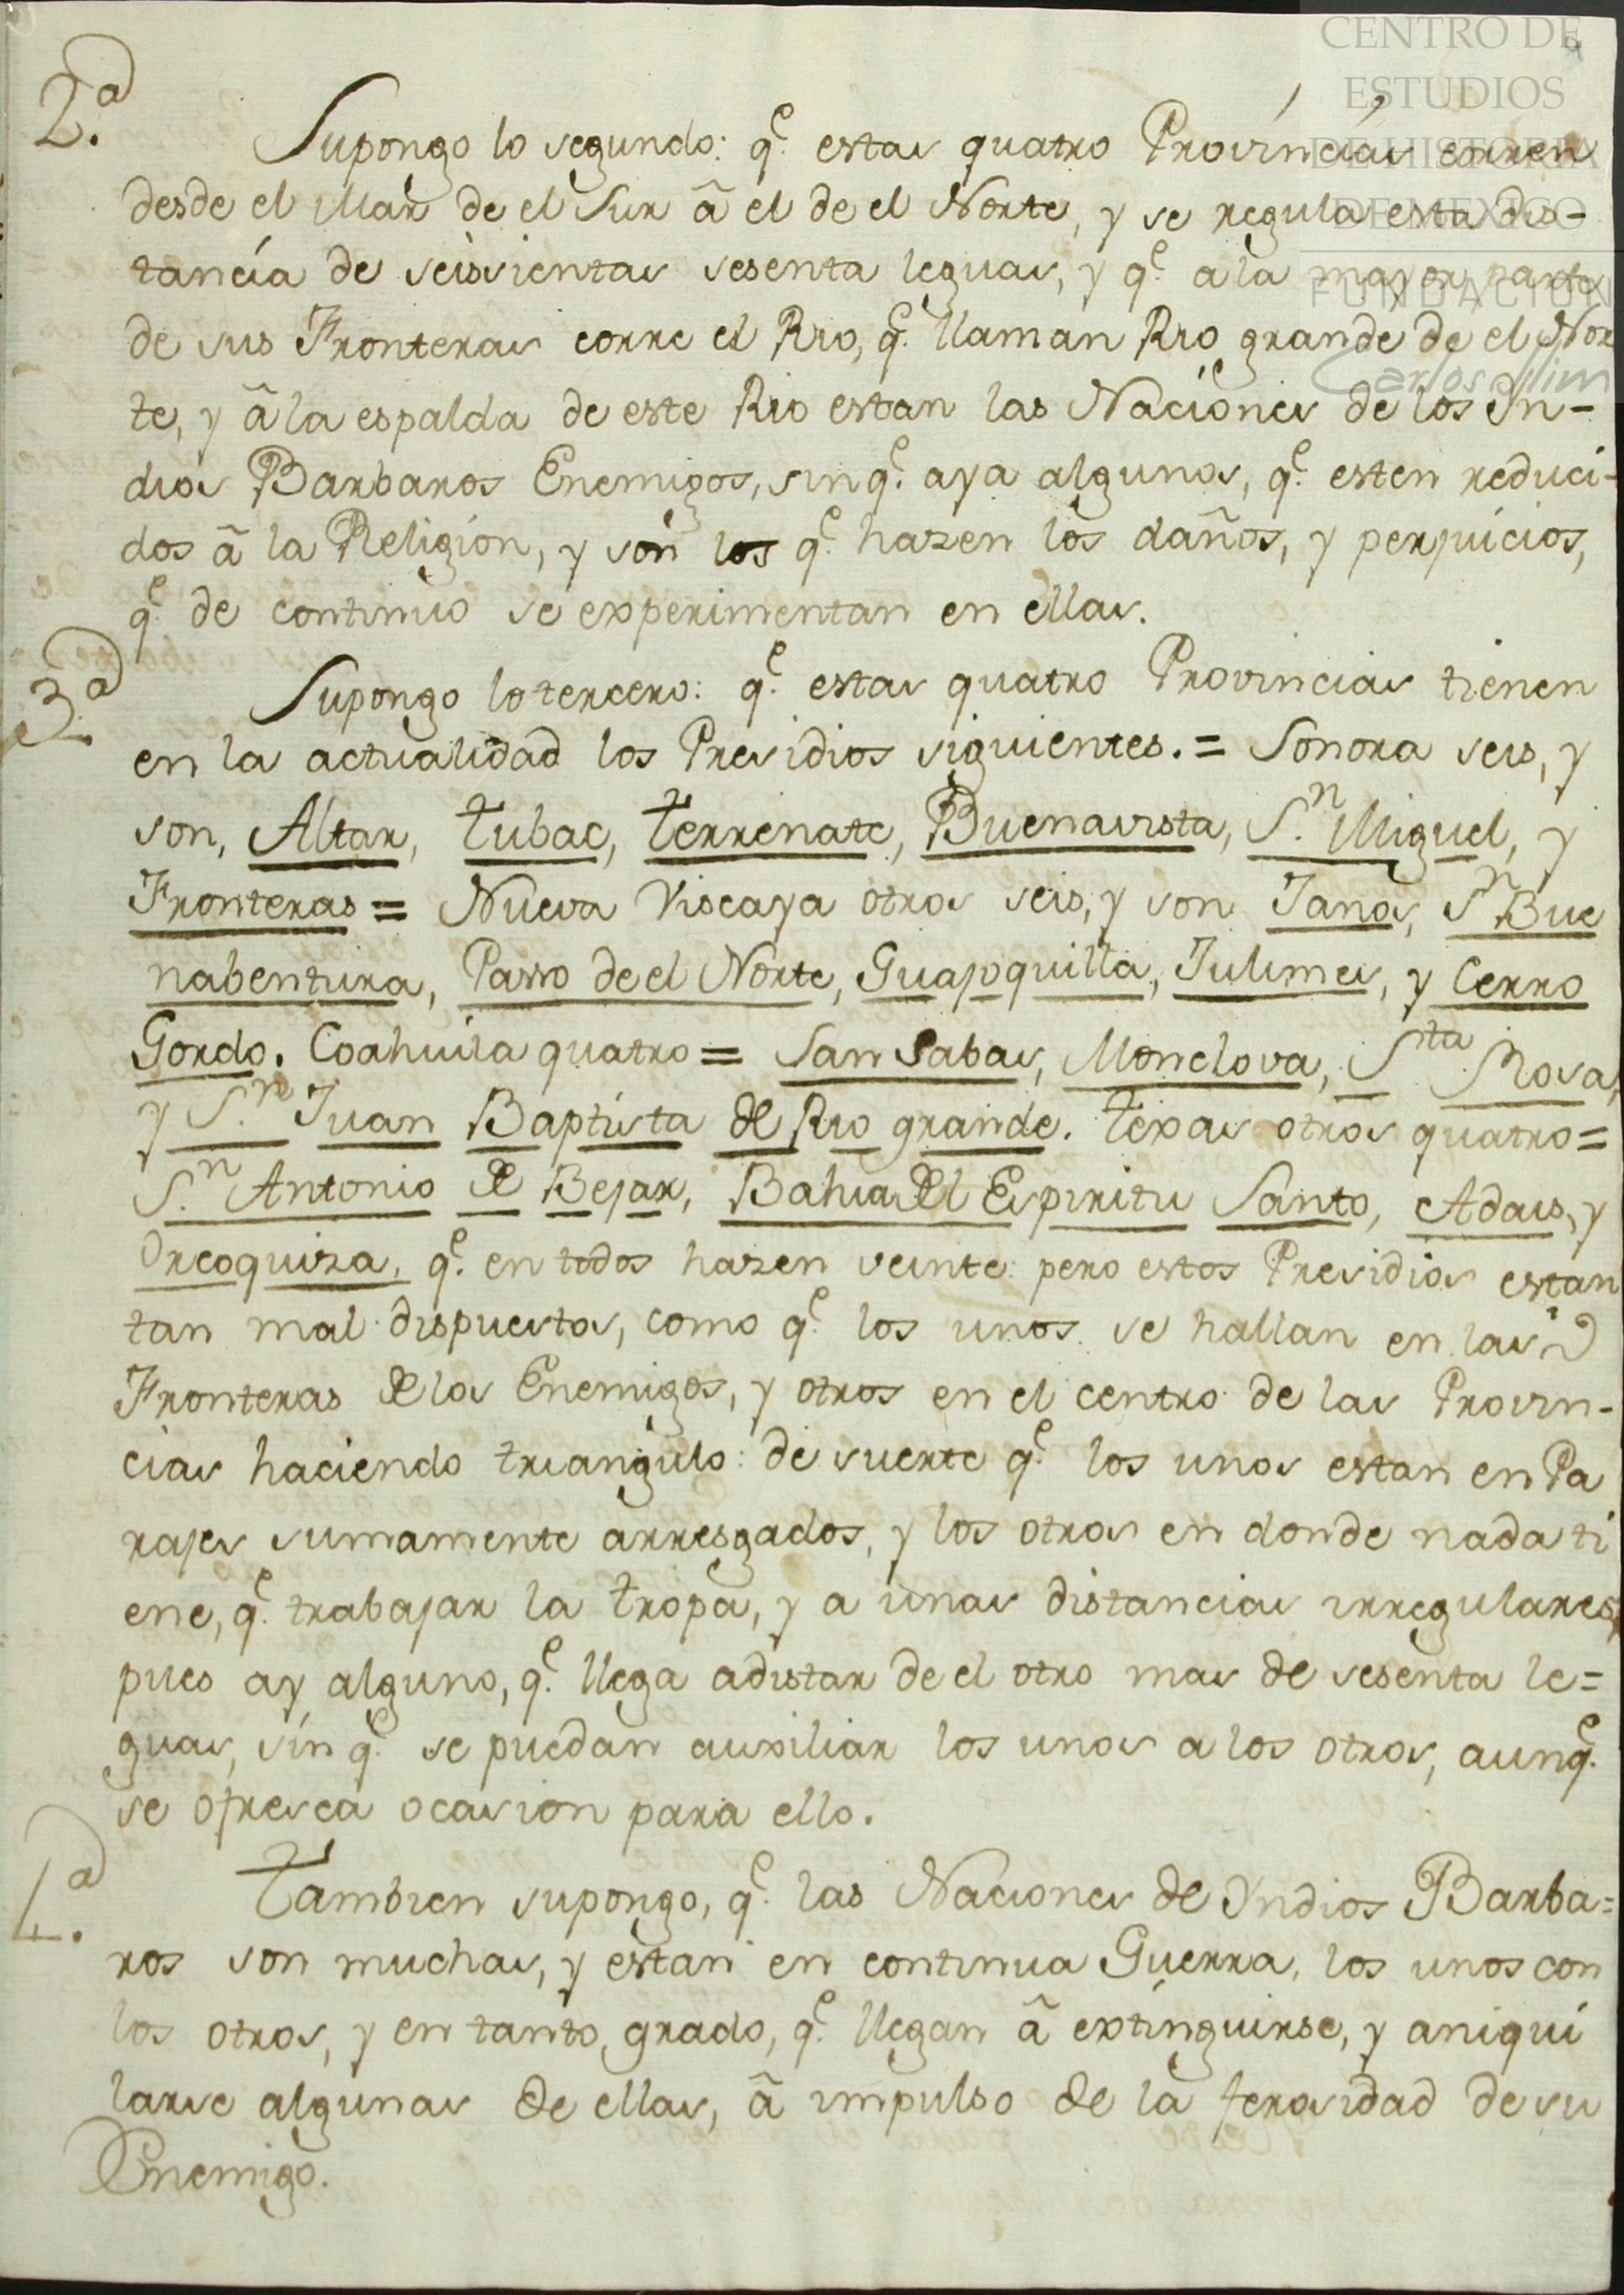 CENTRO DE
ESTUDIOS
DE HISTORIA
DE MEXICO
FUNDACIÓN
Carlos Slim
2.ª
Supongo lo segundo: q.e estas quatro Províncías corren
desde el Mar de el Sur â el de el Norte, y se regula esta dis-
tancía de seiscientas sesenta leguas, y q.e a la mayor parte
de sus Fronteras corre el Rio, q.e llaman Rio grande de el Nor
te, y â la espalda de este Rio estan las Naciones de los In-
dios Barbaros Enemigos, sin q.e aya algunos, q.e esten reduci-
dos â la Religion, y son los q.e hazen los daños, y perjuicios,
q.e de continuo se experimentan en ellas.
3.ª
Supongo lo tercero: q.e estas quatro Provincias tienen
en la actualidad los Presidios siguientes. = Sonora seis, y
son, Altar, Tubac, Terrenate, Buenavista, S.n Miguel, y
Fronteras = Nueva Viscaya otros seis, y son Janos, S.n Bue
nabentura, Passo de el Norte, Guajoquilla, Julimes, y Cerro
Gordo. Coahuila quatro = San Sabas, Monclova, S.ta Rosa,
y S.n Juan Baptista de Rio grande. Texas otros quatro =
S.n Antonio de Bejar, Bahia del Espiritu Santo, Adais, y
Orcoquiza, q.e en todos hazen veinte: pero estos Presidios estan
tan mal dispuestos, como q.e los unos se hallan en las
Fronteras de los Enemigos, y otros en el centro de las Provin-
cias haciendo triangulo: de suerte q.e los unos estan en Pa
rajes sumamente arresgados, y los otros en donde nada ti
ene, q.e trabajar la tropa, y a unas distancias irregulares,
pues ay alguno, q.e llega adistar de el otro mas de sesenta le=
guas, sin q.e se puedan auxiliar los unos a los otros, aunq.e
se ofresca ocasion para ello.
4.ª
Tambien supongo, q.e las Naciones de Yndios Barba=
ros son muchas, y estan en continua Guerra, los unos con
los otros, y en tanto, grado, q.e llegan â extinguirse, y aniqui
larse algunas de ellas, â impulso de la ferosidad de su
Enemigo.